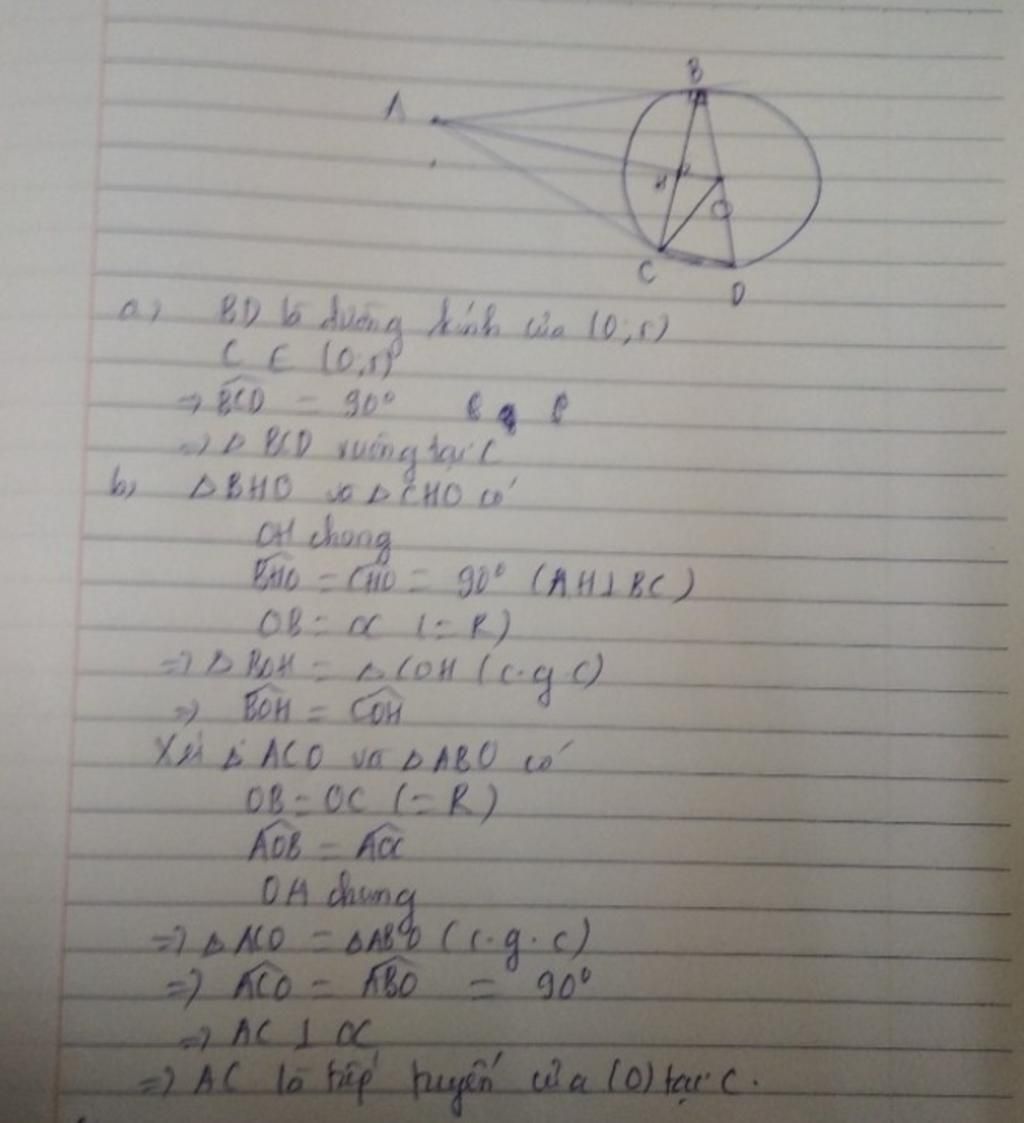 A
B
H
O
C
D
a) BD là đường kính của (O;r)
C ∈ (O;r)
=> BCD = 90°
=> Δ BCD vuông tại C
b) Δ BHO và Δ CHO có
OH chong
BHO = CHO = 90° (AH ⊥ BC)
OB = OC (= R)
=> Δ BOH = Δ COH (c.g.c)
=> BOH = COH
Xét Δ ACO và Δ ABO có
OB = OC (= R)
AOB = AOC
OA chung
=> Δ ACO = Δ ABO (c.g.c)
=> ACO = ABO = 90°
=> AC ⊥ OC
=> AC là tiếp tuyến của (O) tại C.